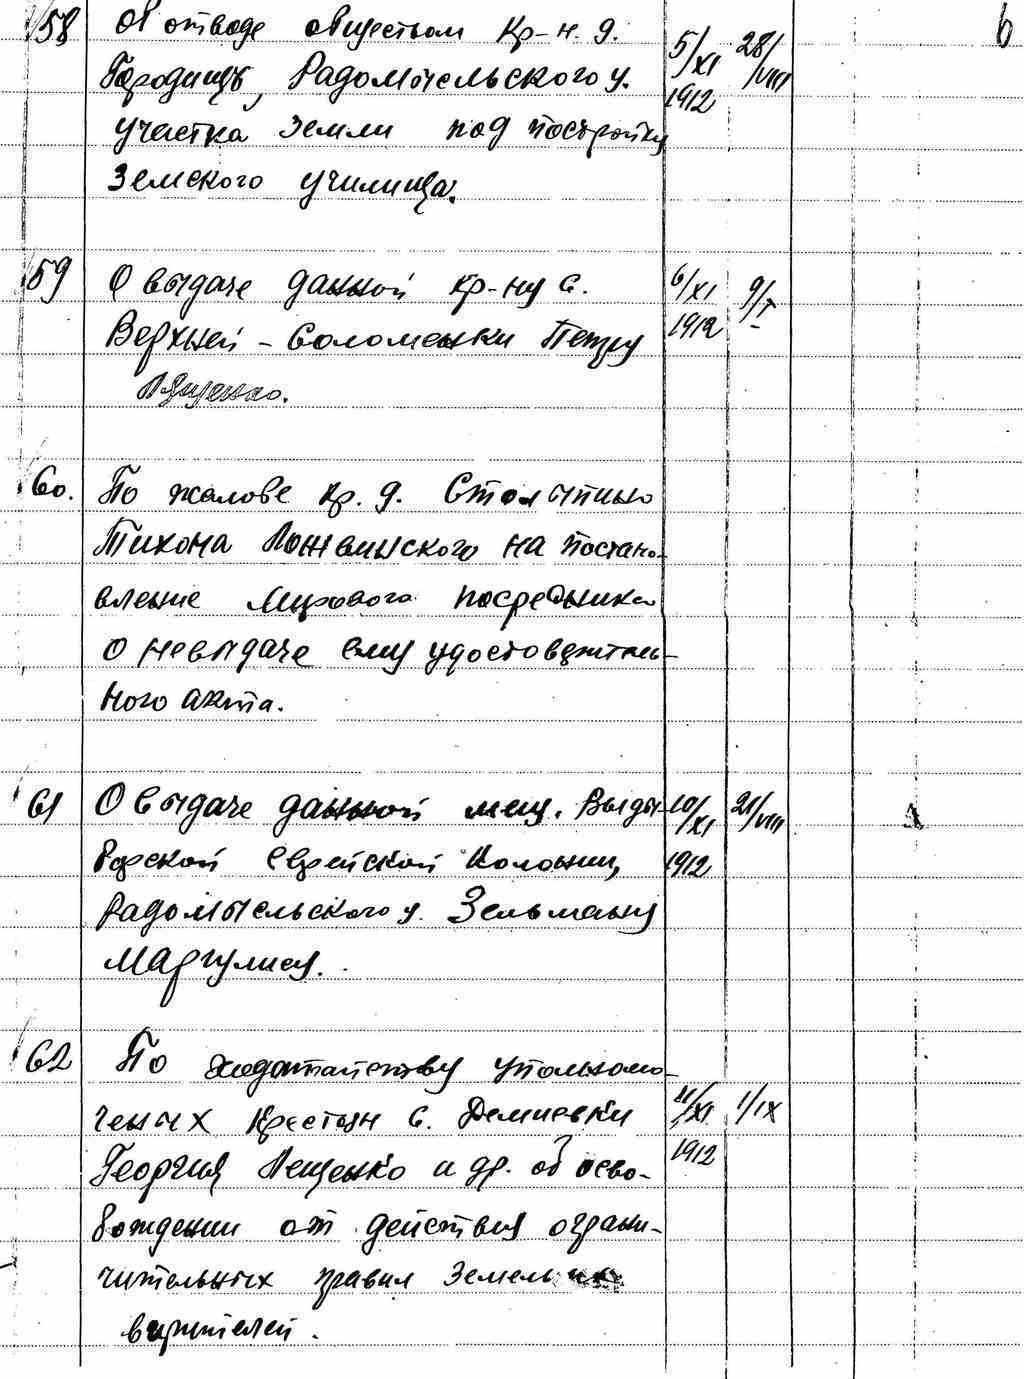 58 Об отводе обществом кр-н. д. 5/XI 28/VIII 6
Городищ, Радомысльского у. 1912
участка земли под постройку
земского училища.
59 О выдаче данной кр-ну с. 6/XI 9/V
Верхней-Соломенки Петру 1912
60. По жалобе кр. д. Столыпино
Тихона на постано-
вление мирового посредника
о невыдаче ему удостоверитель-
ного акта.
61 О выдаче данной мещ. Выды- 10/XI 21/VIII
борской Еврейской Колонии, 1912
Радомысльского у. Зельману
Маргулису.
62 По ходатайству уполномо-
ченых крестьян с. Демиевки 11/XI 1/IX
Георгия Лещенко и др. об осво- 1912
бождении от действия ограни-
чительных правил